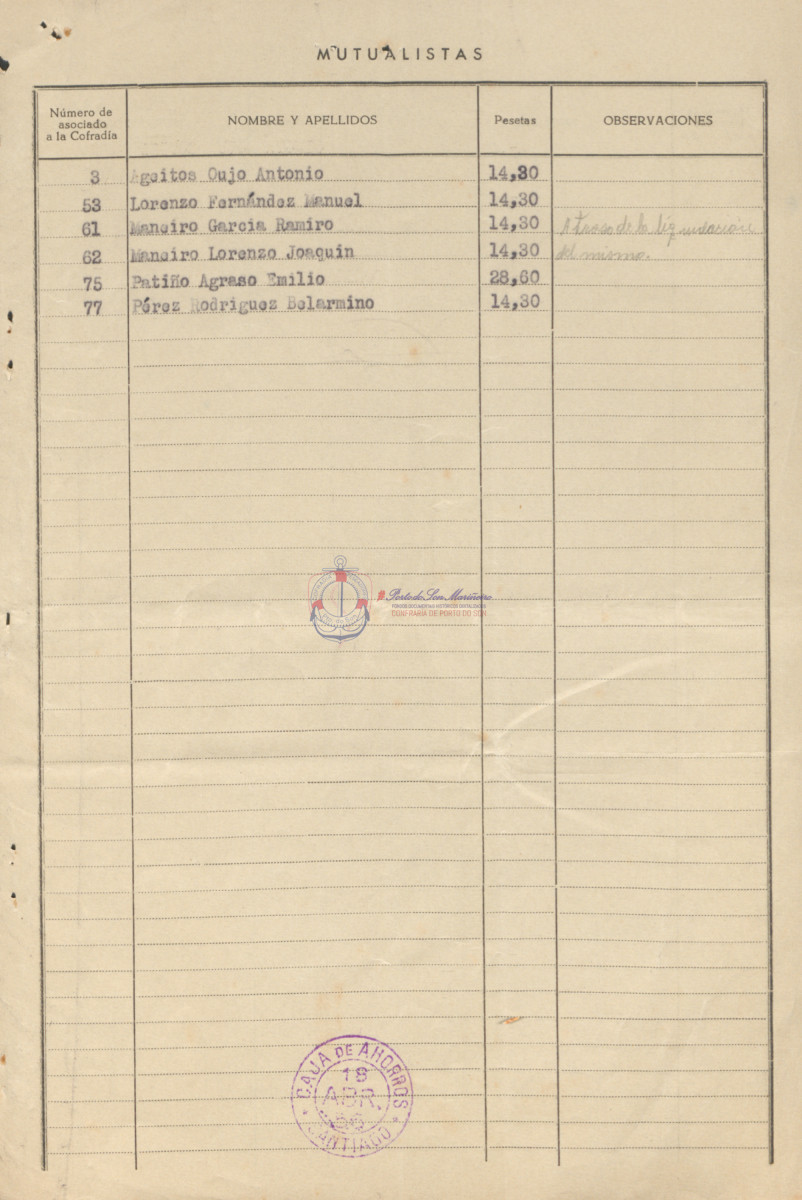 MUTUALISTAS
Número de asociado a la Cofradía NOMBRE Y APELLIDOS Pesetas OBSERVACIONES
3 Ageitos Oujo Antonio 14,30
53 Lorenzo Fernández Manuel 14,30
61 Maneiro Garcia Ramiro 14,30 Atraso de la liquidación
62 Maneiro Lorenzo Joaquin 14,30 del mismo.
75 Patiño Agraso Emilio 28,60
77 Pérez Rodriguez Belarmino 14,30
Porto do Son Mariñeiro
CONFRARÍA DE PORTO DO SON
CAJA DE AHORROS
18
ABR.
SANTIAGO